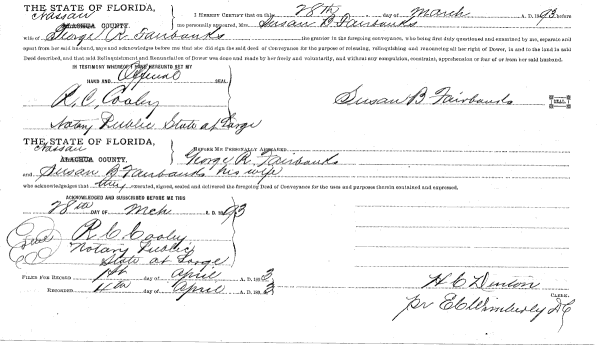 THE STATE OF FLORIDA,
Nassau
ALACHUA COUNTY.
I HEREBY CERTIFY that on this 28th day of March A. D. 1893 before
me personally appeared, Mrs. Susan B Fairbanks
wife of George R. Fairbanks the grantor in the foregoing conveyance, who being first duly questioned and examined by me, separate and
apart from her said husband, says and acknowledges before me that she did sign the said deed of Conveyance for the purpose of releasing, relinquishing and renouncing all her right of Dower, in and to the land in said
Deed described, and that said Relinquishment and Renunciation of Dower was done and made by her freely and voluntarily, and without any compulsion, constraint, apprehension or fear of or from her said husband.
IN TESTIMONY WHEREOF I HAVE HEREUNTO SET MY
HAND AND Official SEAL
R. C. Cooley
Susan B Fairbanks SEAL.
Notary Public State at Large
THE STATE OF FLORIDA,
Nassau
ALACHUA COUNTY.
BEFORE ME PERSONALLY APPEARED
George R. Fairbanks
and Susan B Fairbanks his wife
who acknowledges that they executed, signed, sealed and delivered the foregoing Deed of Conveyance for the uses and purposes therein contained and expressed.
ACKNOWLEDGED AND SUBSCRIBED BEFORE ME THIS
28th DAY OF Mch A. D. 1893
Seal
R. C. Cooley
Notary Public
State at Large
FILED FOR RECORD 1st day of April A. D. 1893
RECORDED 4th day of April A. D. 1893
H C Denton
CLERK.
pr E C Wimberly D C